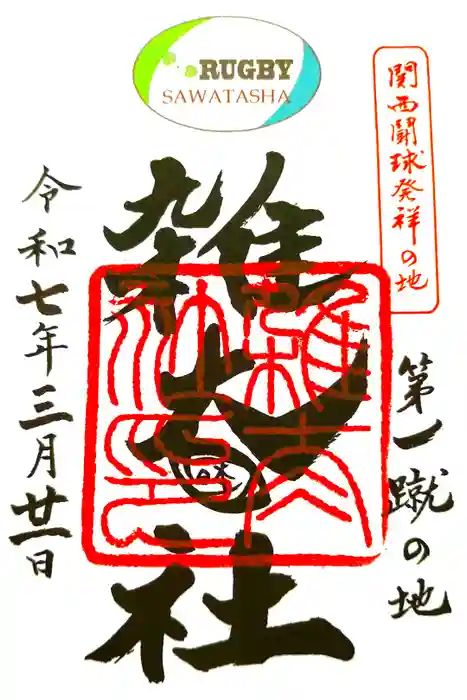 RUGBY
SAWATASHA
関西闘球発祥の地
第一蹴の地
雑太社
雑太社印
令和七年三月廿一日